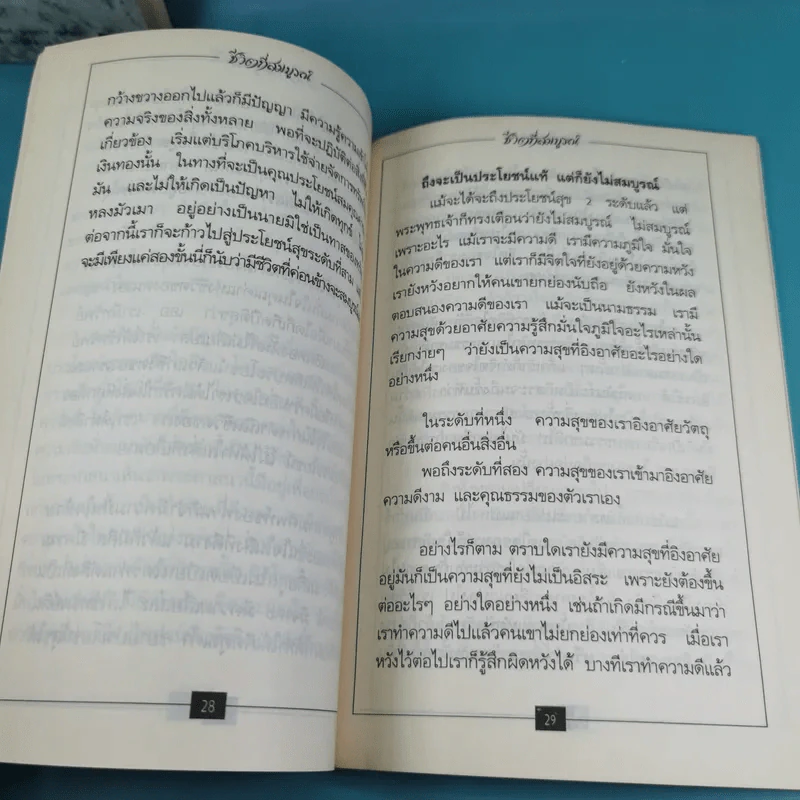 ชีวิตที่สมบูรณ์
กว้างขวางออกไปแล้วก็มีปัญญา มีความรู้ความเข้าใจ
ความจริงของสิ่งทั้งหลาย พอที่จะปฏิบัติต่อสิ่งที่
เกี่ยวข้อง เริ่มแต่บริโภคบริหารใช้จ่ายจัดการทรัพย์สิน
เงินทองนั้น ในทางที่จะเป็นคุณประโยชน์สมคุณค่า
มัน และไม่ให้เกิดเป็นปัญหา ไม่ให้เกิดทุกข์
หลงมัวเมา อยู่อย่างเป็นนายมิใช่เป็นทาสของ
ต่อจากนี้เราก็จะก้าวไปสู่ประโยชน์สุขระดับที่สาม
จะมีเพียงแค่สองขั้นนี้ก็นับว่ามีชีวิตที่ค่อนข้างจะสมบูรณ์
28
ชีวิตที่สมบูรณ์
ถึงจะเป็นประโยชน์แท้ แต่ก็ยังไม่สมบูรณ์
แม้จะได้จะถึงประโยชน์สุข 2 ระดับแล้ว แต่
พระพุทธเจ้าก็ทรงเตือนว่ายังไม่สมบูรณ์ ไม่สมบูรณ์
เพราะอะไร แม้เราจะมีความดี เรามีความภูมิใจ มั่นใจ
ในความดีของเรา แต่เราก็มีจิตใจที่ยังอยู่ด้วยความหวัง
เรายังหวังอยากให้คนเขายกย่องนับถือ ยังหวังในผล
ตอบสนองความดีของเรา แม้จะเป็นนามธรรม เรามี
ความสุขด้วยอาศัยความรู้สึกมั่นใจภูมิใจอะไรเหล่านั้น
เรียกง่ายๆ ว่ายังเป็นความสุขที่อิงอาศัยอะไรอย่างใด
อย่างหนึ่ง
ในระดับที่หนึ่ง ความสุขของเราอิงอาศัยวัตถุ
หรือขึ้นต่อคนอื่นสิ่งอื่น
พอถึงระดับที่สอง ความสุขของเราเข้ามาอิงอาศัย
ความดีงาม และคุณธรรมของตัวเราเอง
อย่างไรก็ตาม ตราบใดเรายังมีความสุขที่อิงอาศัย
อยู่มันก็เป็นความสุขที่ยังไม่เป็นอิสระ เพราะยังต้องขึ้น
ต่ออะไรๆ อย่างใดอย่างหนึ่ง เช่นถ้าเกิดมีกรณีขึ้นมาว่า
เราทำความดีไปแล้วคนเขาไม่ยกย่องเท่าที่ควร เมื่อเรา
หวังไว้ต่อไปเราก็รู้สึกผิดหวังได้ บางทีเราทำความดีแล้ว
29